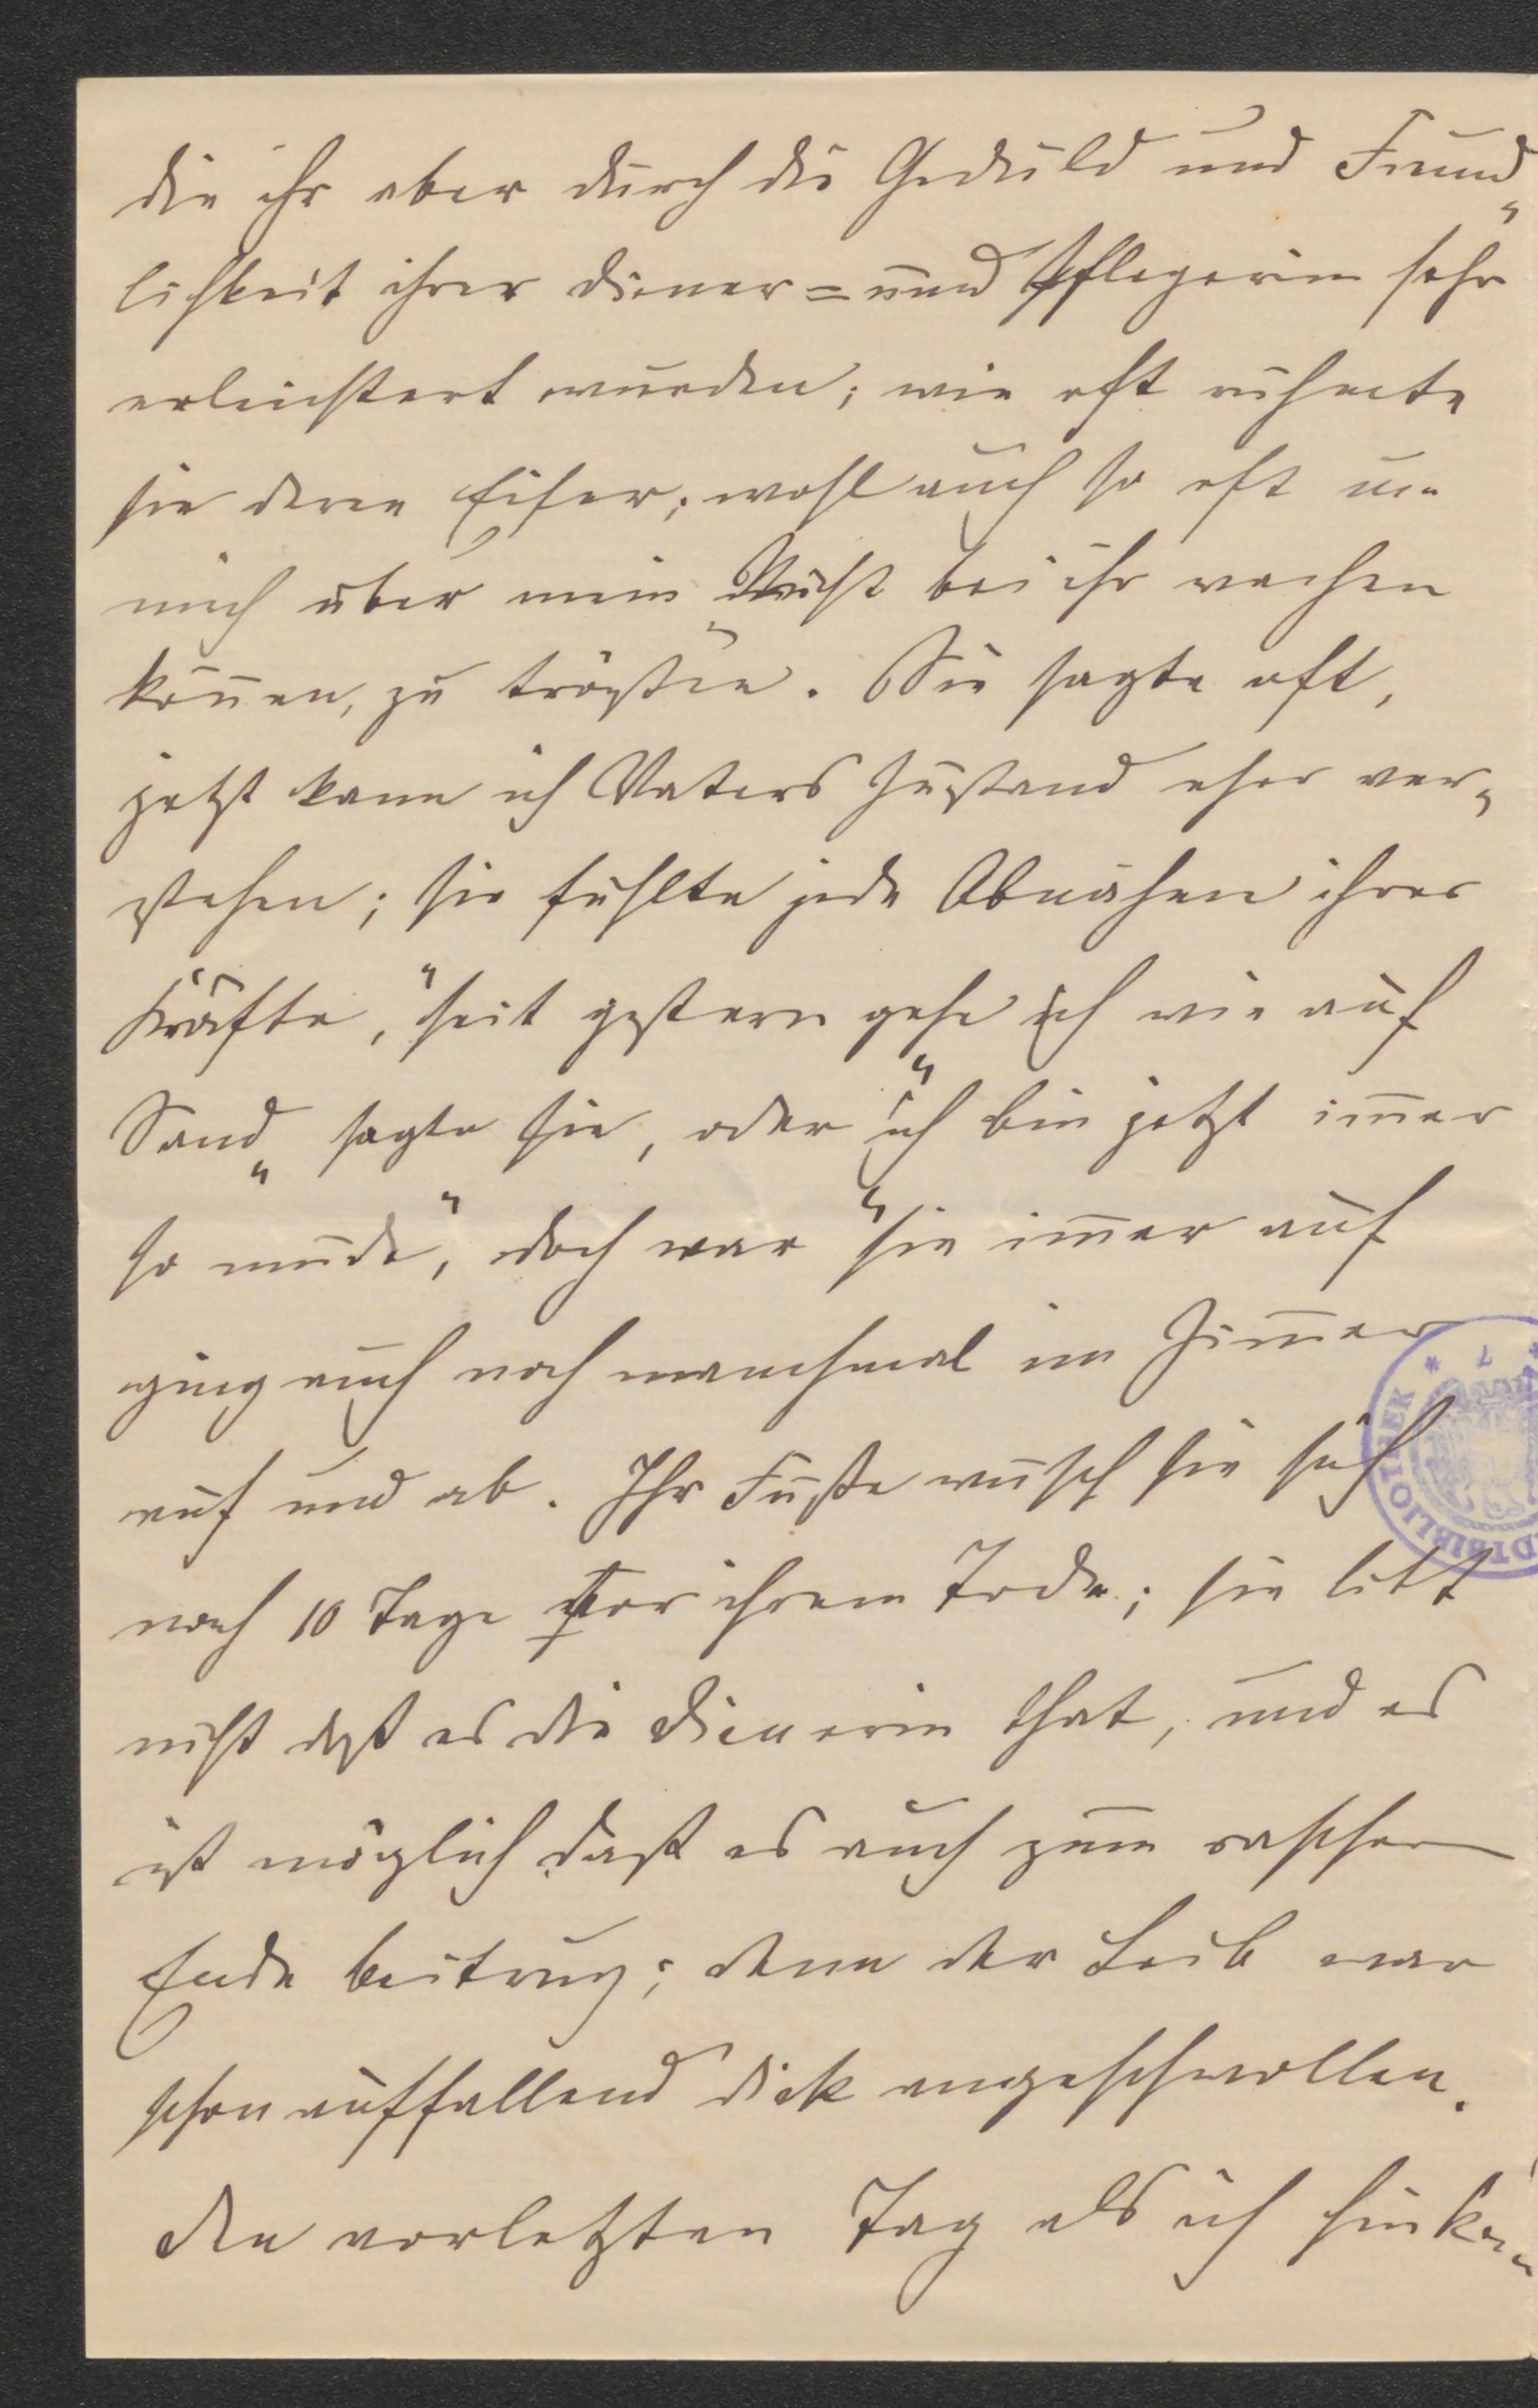 die ihr aber durch die Geduld und Freund„
lichkeit ihrer Diener= und Pflegerin sehr
erleichtert wurden; wie oft rühmte
sie deren Eifer; wohl auch so oft um
mich über mein Nicht bei ihr wachen
können, zu trösten. Sie sagte oft,
jetzt kann ich Vaters Zustand eher ver„
stehen; sie fühlte jede Abnahme ihrer
Kräfte, "seit gestern gehe ich wie auf
Sand„ sagte sie, oder "ich bin jetzt im̄er
so müde", doch war sie im̄er auf
ging auch noch manchmal im Zim̄er
auf und ab. Ihr Füße wusch sie sich
noch 10 Tage vor ihrem Tode; sie litt
nicht daß es die Dienerin that, und es
ist möglich daß es auch zum raschern
Ende beitrug; denn der Leib war
schon auffallend dick angeschwollen.
Den vorletzten Tag als ich hinkam